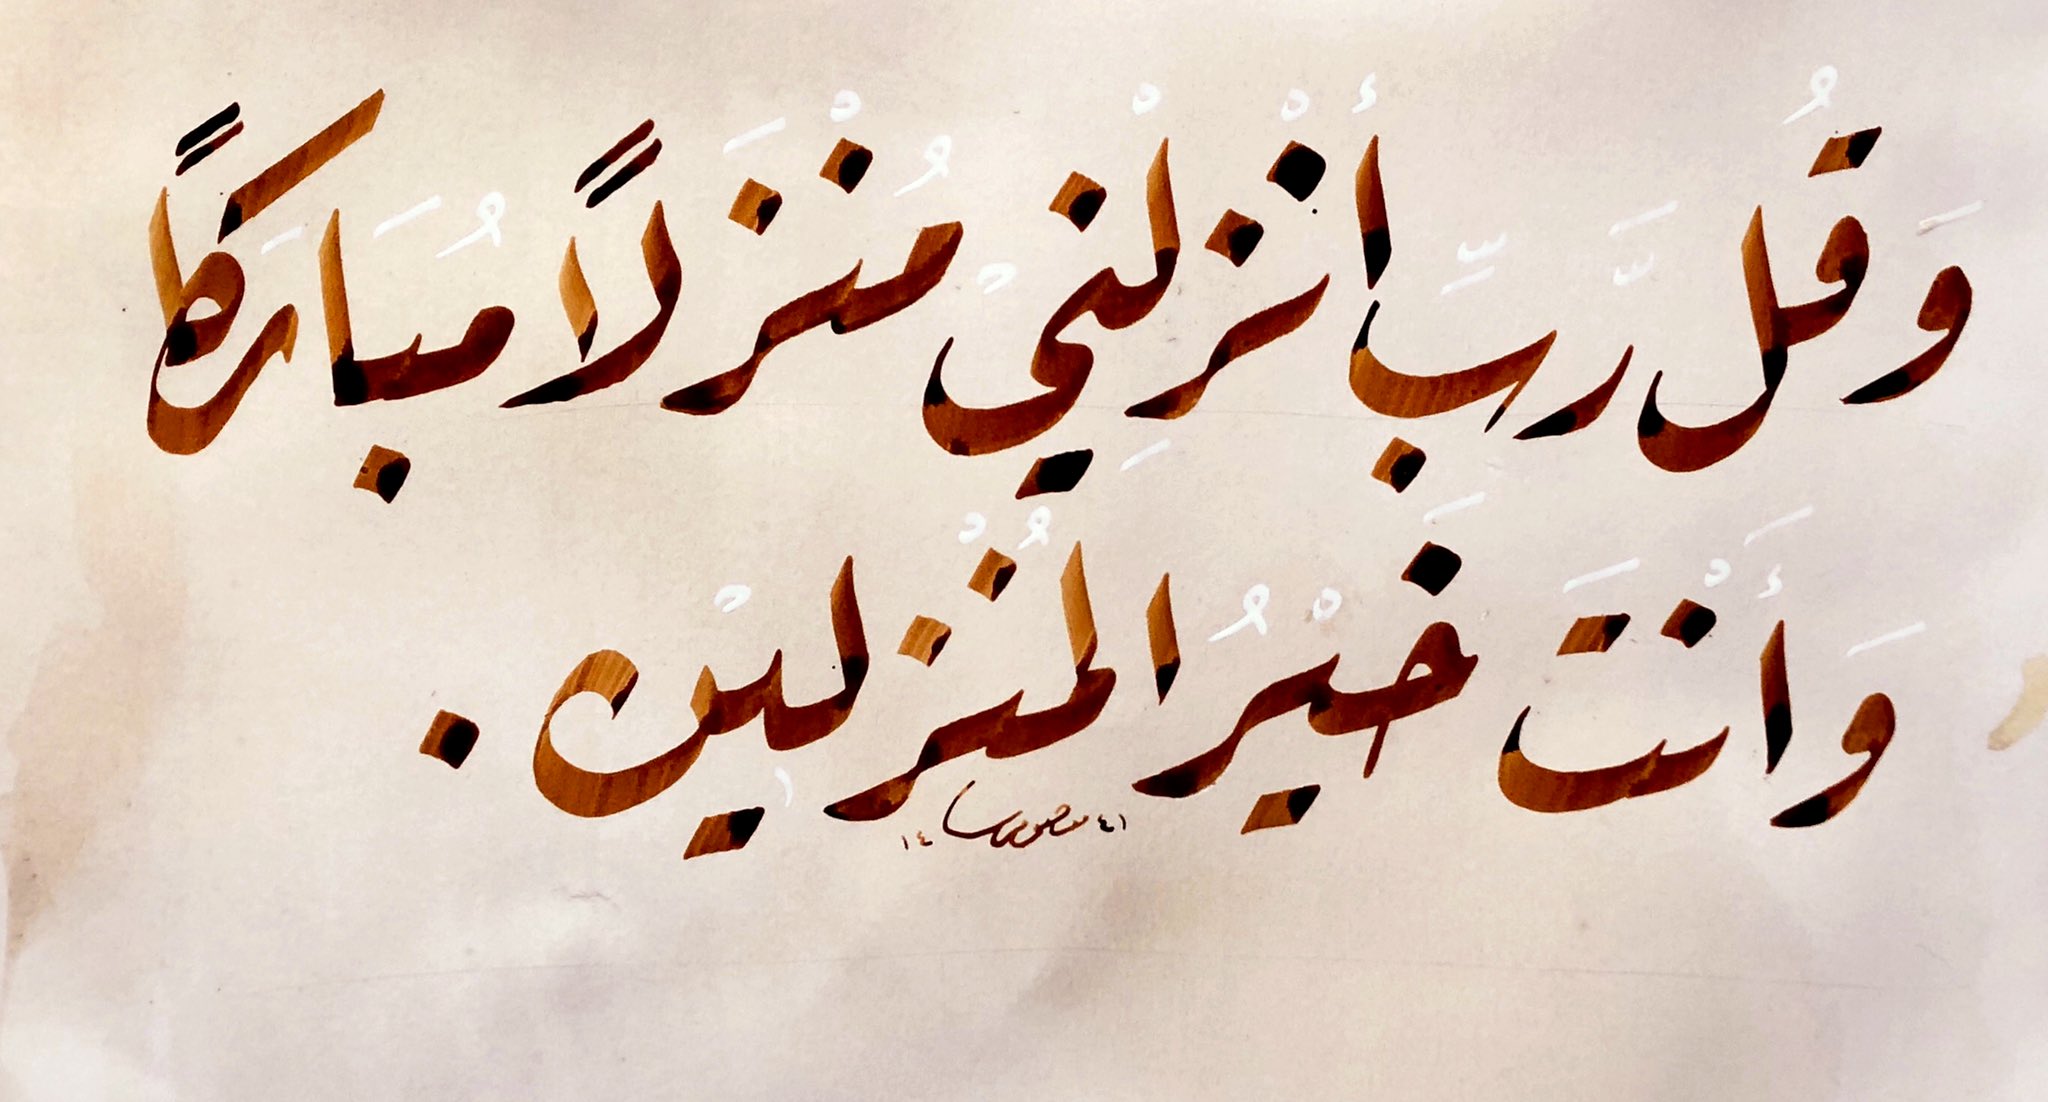 وَقُل رَّبِّ أَنْزِلْنِيْ مُنْزَلًا مُبَارَكًا
وَأَنْتَ خَيْرُ المُنْزِلِيْن .